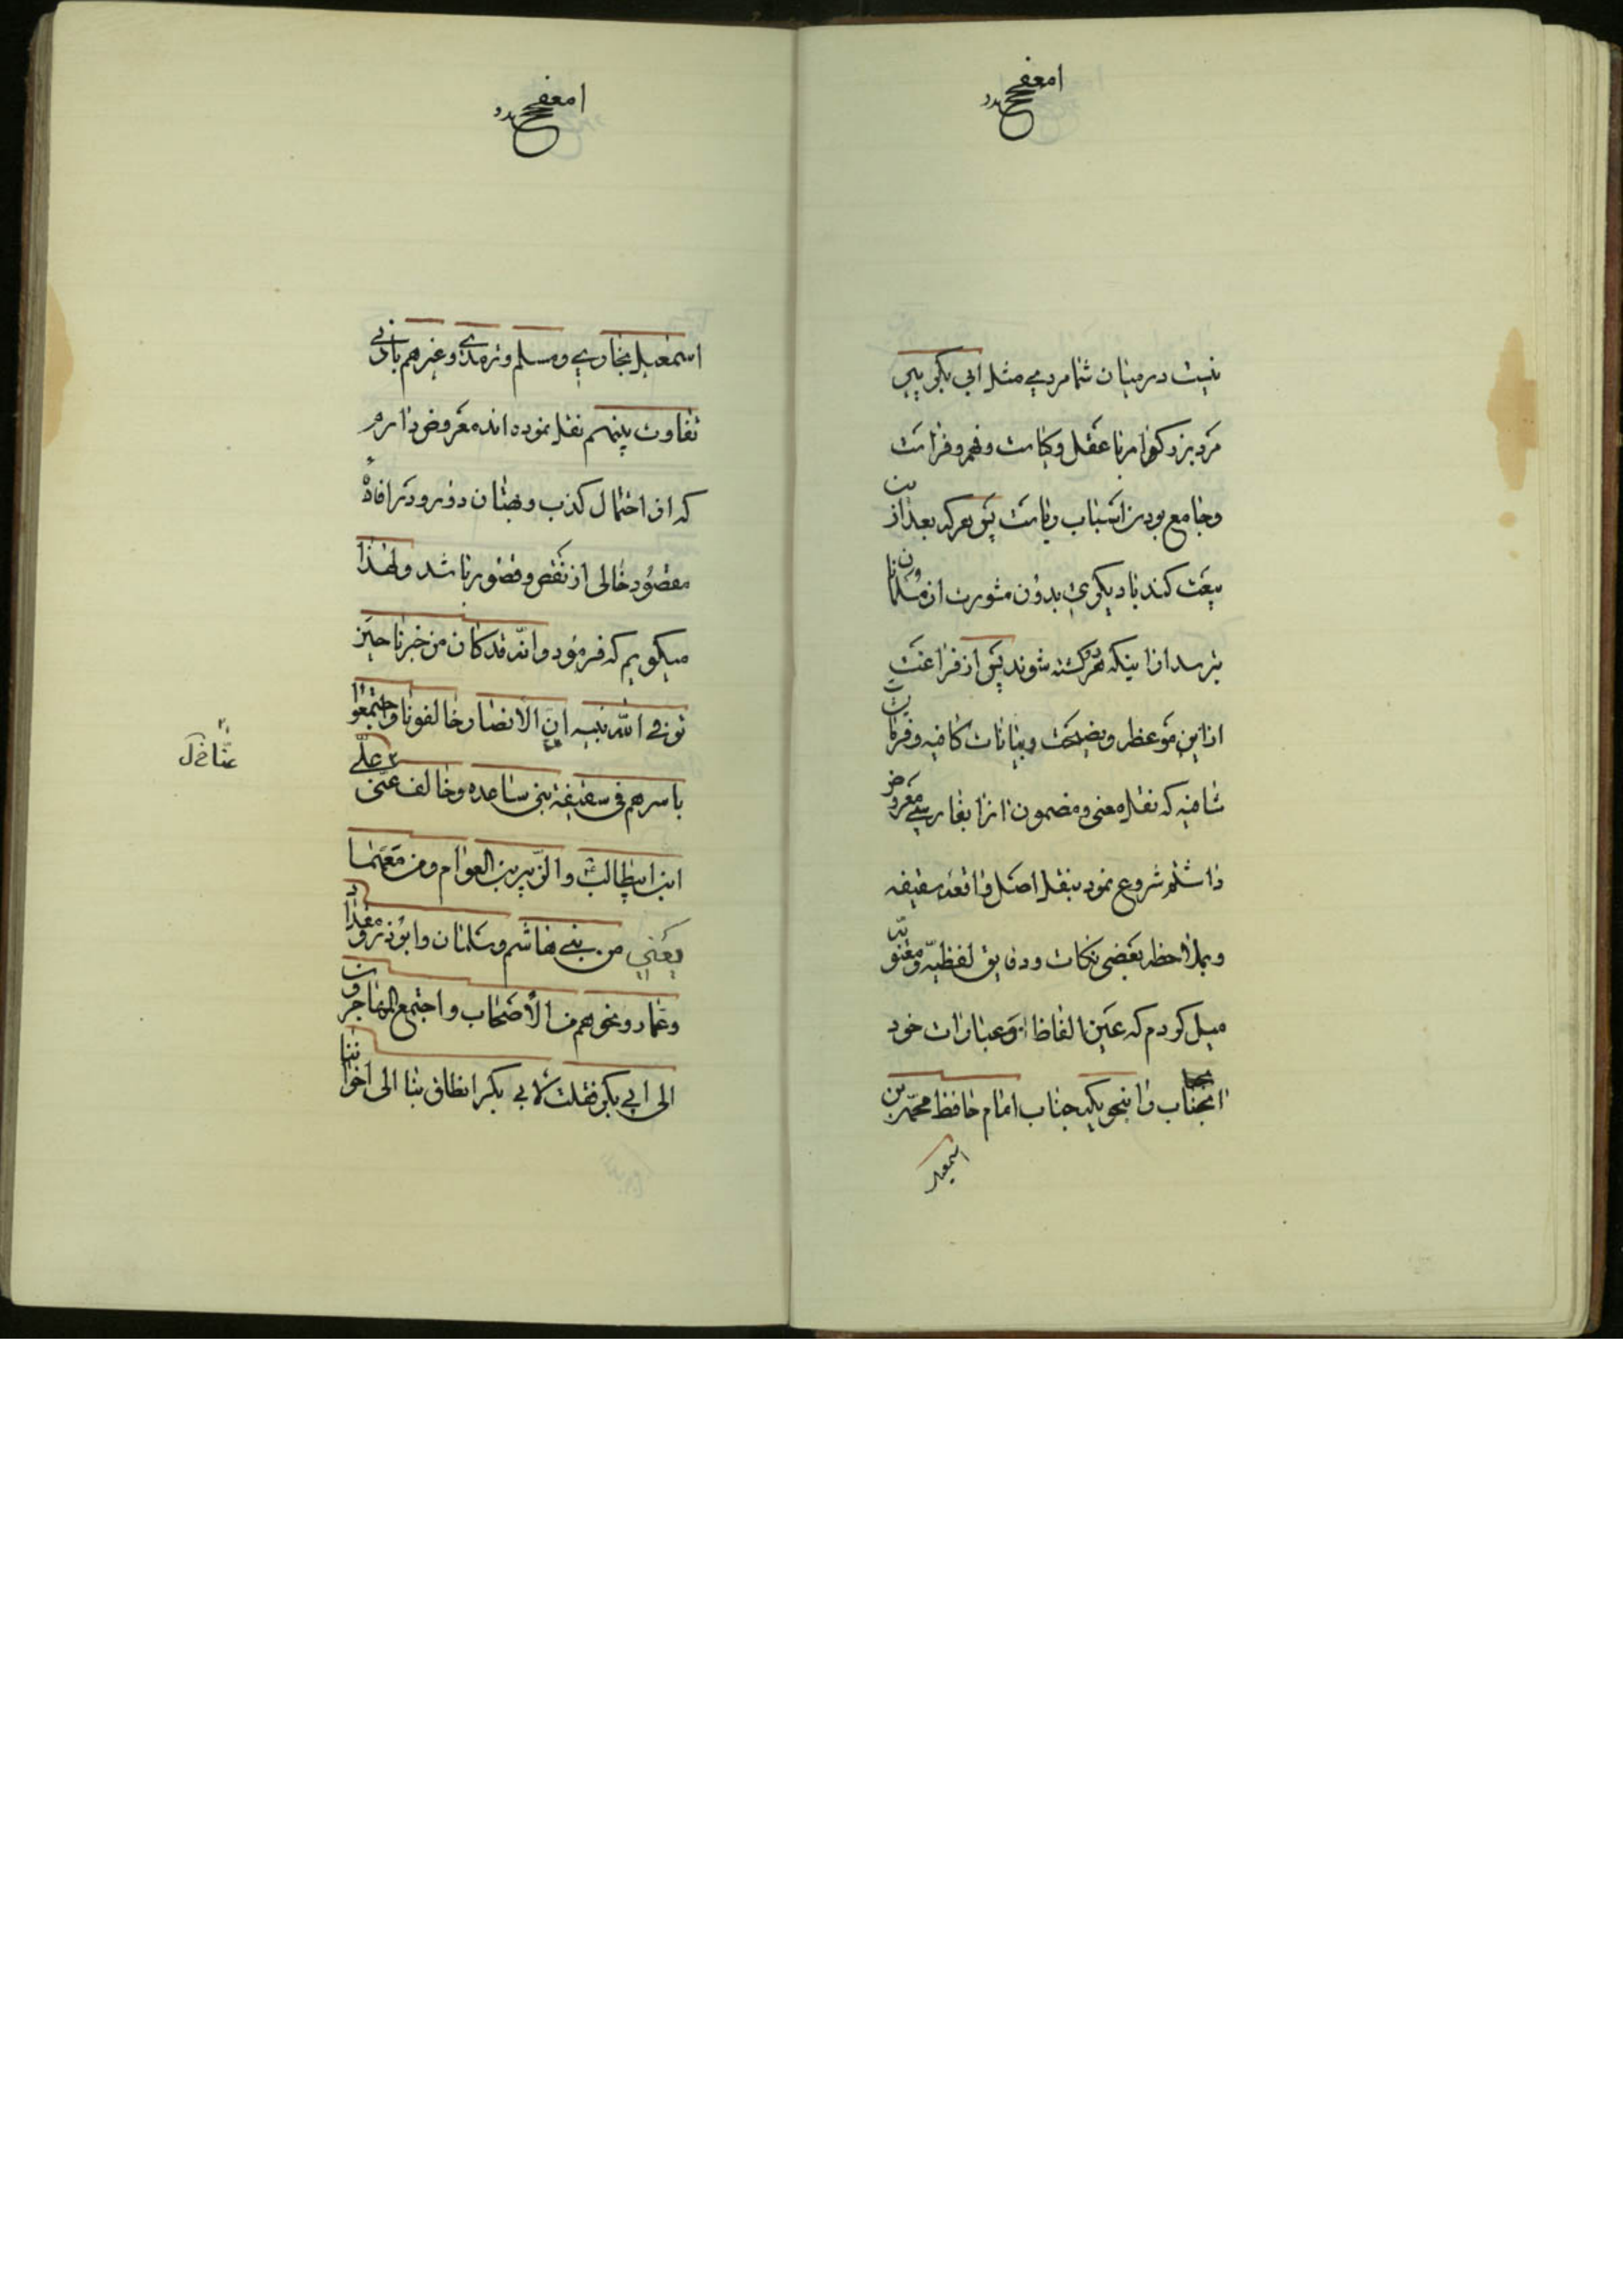 نیست در میان شما مردمی مثل ابی بکر پس
مرد بزرگوار با عقل و کیاست و فهم و فراست
و جامع بودن اسباب ریاست پس هر که بعد از این
بیعت کند با دیگری بدون مشورت از مسلمانان
بترسد از اینکه هر دو کشته شوند پس از فراغت
از این موعظه و نصیحت و بیانات کافیه و فرمایشات
شافیه که نقل معنی و مضمون انرا بفارسی معروض
داشتم شروع نمود بنقل اصل واقعه سقیفه
و بملاحظه بعضی نکات و دقایق لفظیه و معنویه
میل کردم که عین الفاظ و عبارات خود
انجناب را بنحویکه جناب امام حافظ محمد بن
اسمعیل
اسمعیل بخاری و مسلم و ترمذی و غیرهم بادنی
تفاوت بینهم نقل نموده اند معروض دارم
که از احتمال کذب و بهتان دور و در افاده
مقصود خالی از نقص و قصور باشد و لهذا
میگویم که فرمود وانه قد کان من خبرنا حین
توفی الله نبیه ان الانصار خالفونا واجتمعوا
باسرهم فی سقیفة بنی ساعده وخالف عنی علی
ابن ابیطالب والزبیر بن العوام ومن معهما
یعنی من بنی هاشم وسلمان وابوذر ومقداد
وعمار ونحوهم من الاصحاب واجتمع المهاجرون
الی ابی بکر فقلت لابی بکر انطلق بنا الی اخواننا
عنا خ ل